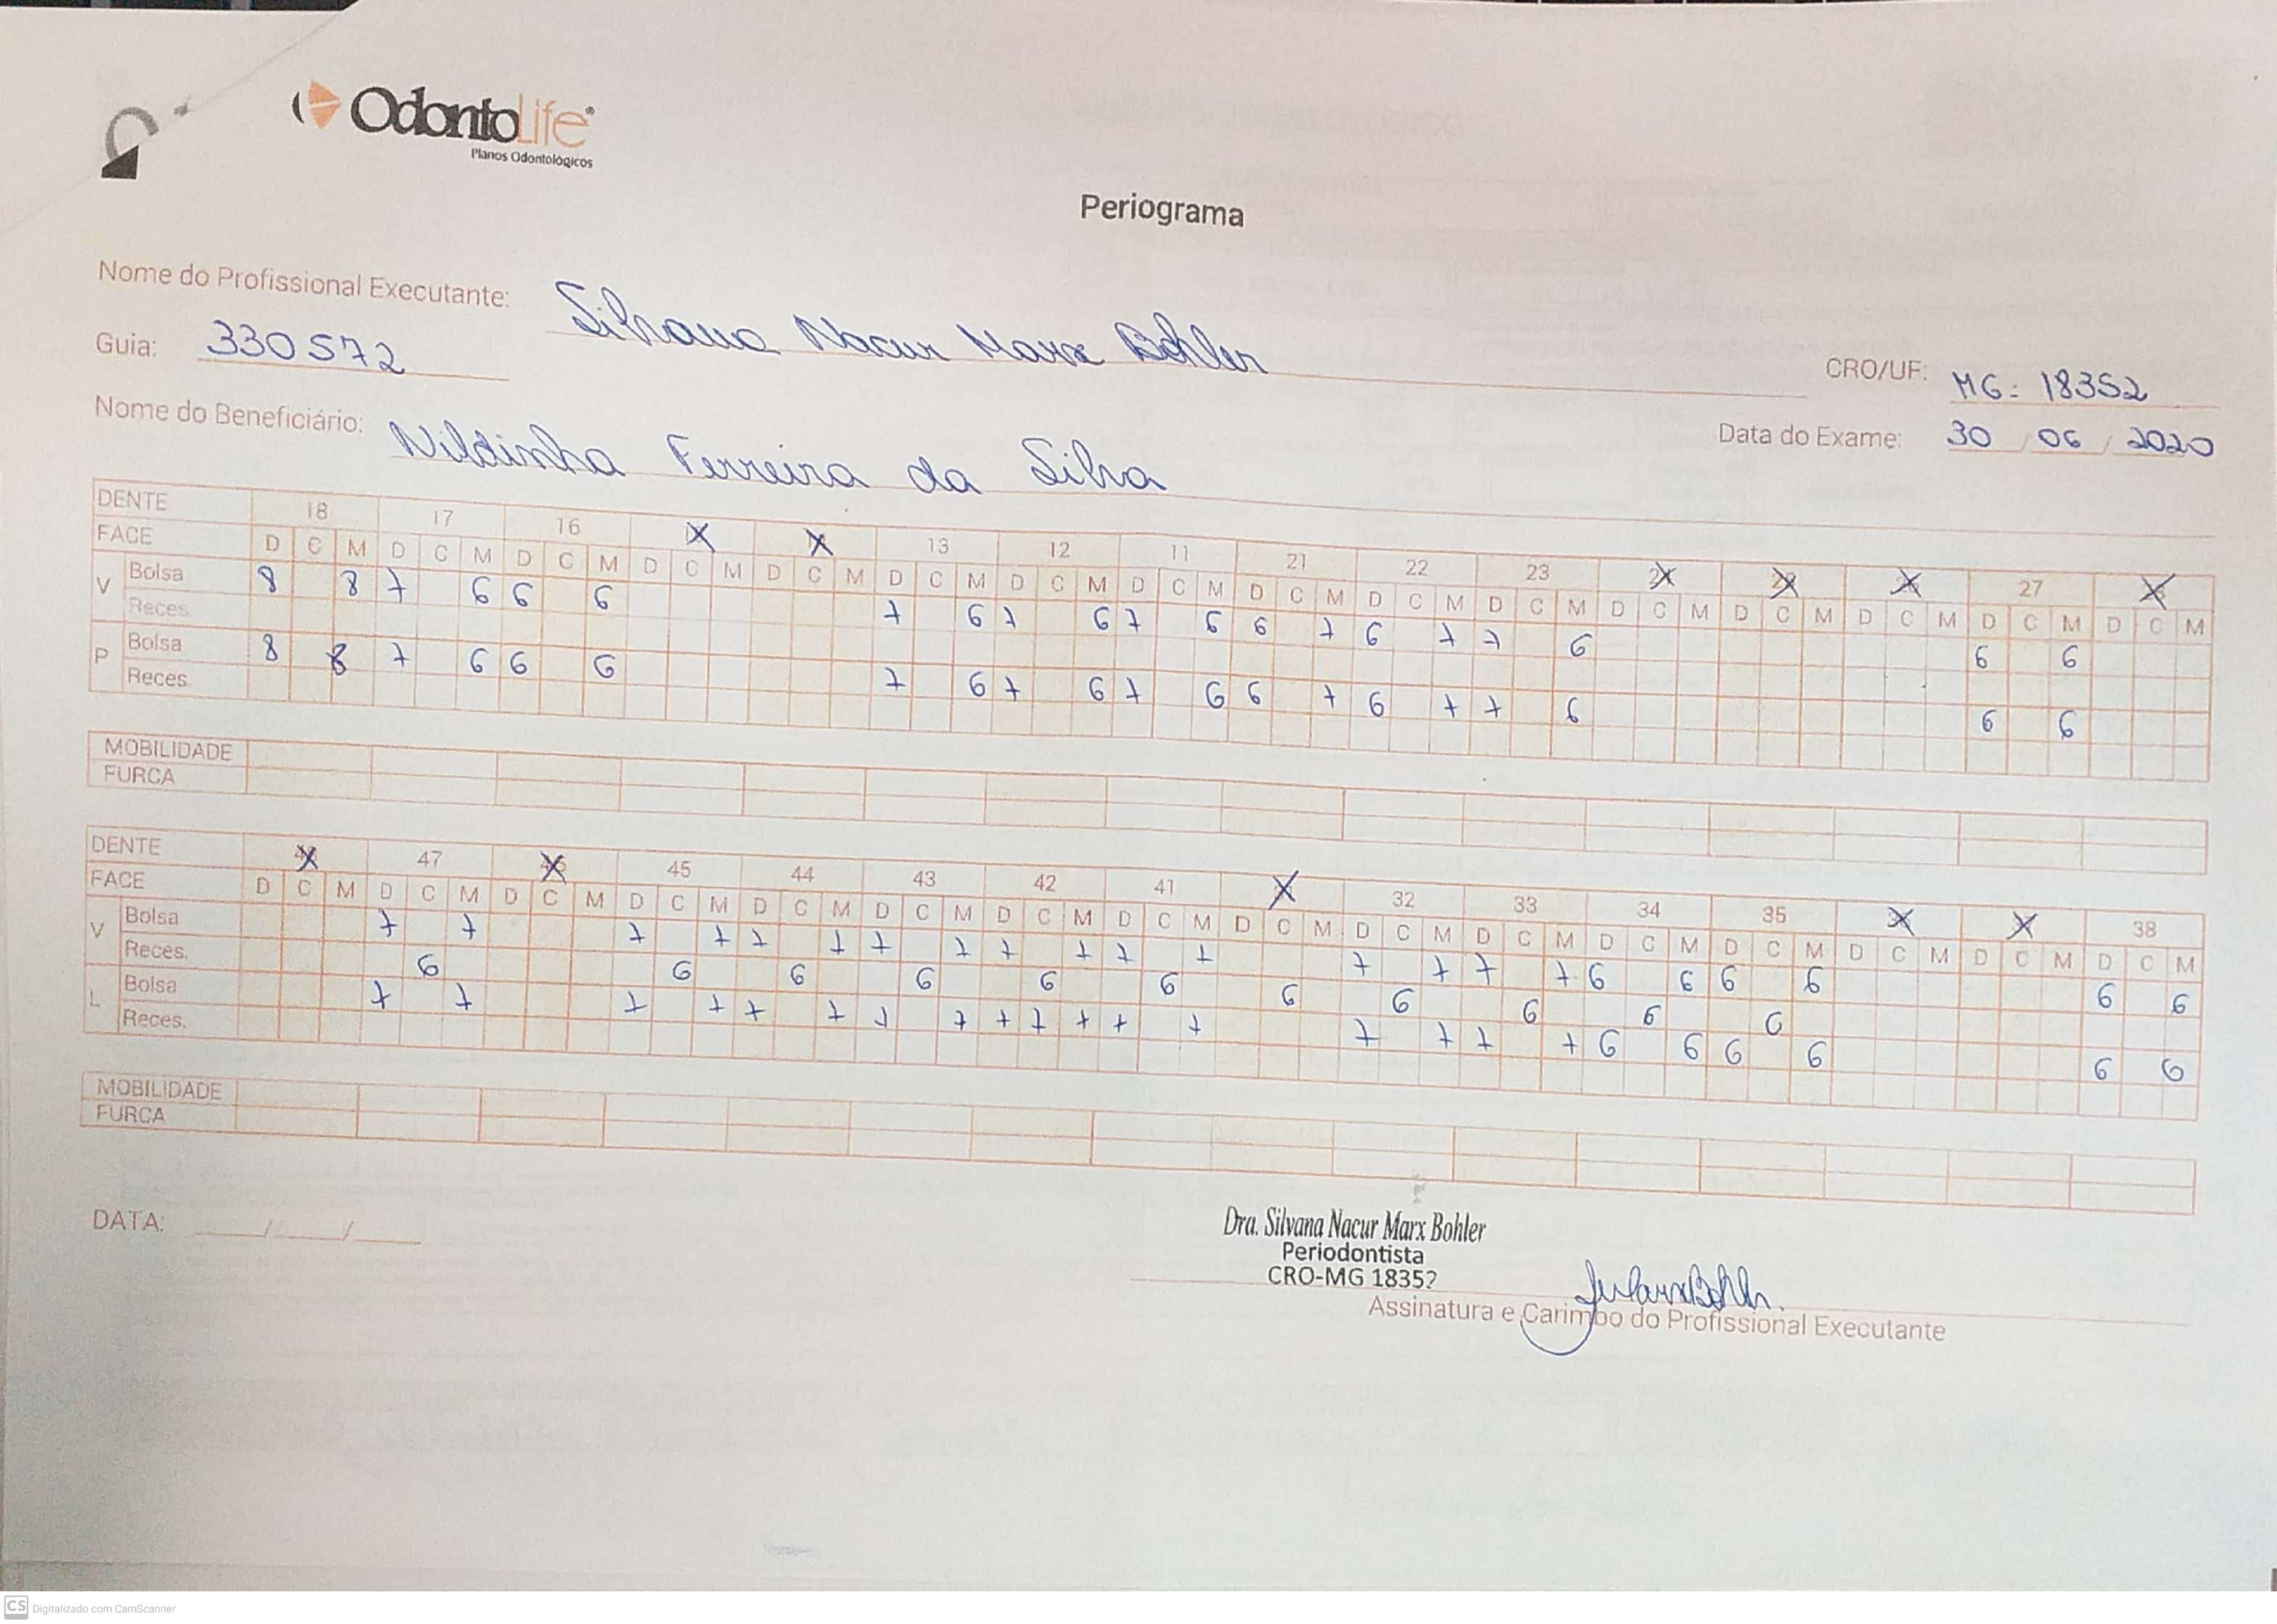 OdontoLife®
Planos Odontológicos
Periograma
Nome do Profissional Executante: Silvana Nacur Marx Bohler
Guia: 330572
CRO/UF: MG: 18352
Nome do Beneficiário: Nildinha Ferreira da Silva
Data do Exame: 30 / 06 / 2020
DENTE 18 17 16 X X 13 12 11 21 22 23 X X X 27 X
FACE D C M D C M D C M D C M D C M D C M D C M D C M D C M D C M D C M D C M D C M D C M D C M D C M
V Bolsa 8 8 7 6 6 6 7 6 7 6 7 6 6 7 6 7 7 6 6 6
Reces.
P Bolsa 8 8 7 6 6 6 7 6 7 6 7 6 6 7 6 7 7 6 6 6
Reces.
MOBILIDADE
FURCA
DENTE X 47 X 45 44 43 42 41 X 32 33 34 35 X X 38
FACE D C M D C M D C M D C M D C M D C M D C M D C M D C M D C M D C M D C M D C M D C M D C M D C M
V Bolsa 7 7 7 7 7 7 7 7 7 7 7 7 7 7 7 7 6 6 6 6 6 6
Reces. 6 6 6 6 6 6 6 6 6 6 6
L Bolsa 7 7 7 7 7 7 7 7 7 7 7 7 7 7 7 7 7 6 6 6 6 6 6
Reces.
MOBILIDADE
FURCA
DATA: / /
Dra. Silvana Nacur Marx Bohler
Periodontista
CRO-MG 18352
Assinatura e Carimbo do Profissional Executante
CS Digitalizado com CamScanner